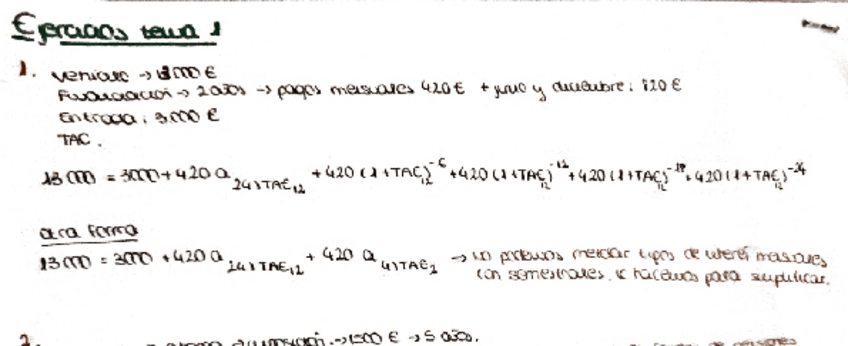 Ejercicios tema 1
1. Vehículo → 13000 €
Financiación → 2 años → pagos mensuales 420 € + junio y diciembre: 120 €
Entrada: 3.000 €
TAC.
13000 = 3000 + 420 a 24⌉TAE₁₂ + 420 (1 + TAE₁₂)⁻⁶ + 420 (1 + TAE₁₂)⁻¹² + 420 (1 + TAE₁₂)⁻¹⁸ + 420 (1 + TAE₁₂)⁻²⁴
otra forma
13000 = 3000 + 420 a 24⌉TAE₁₂ + 420 a 4⌉TAE₂ → no podemos mezclar tipos de interés mensuales
con semestrales. lo hacemos para simplificar.
2. → 1500 € → 5 años.